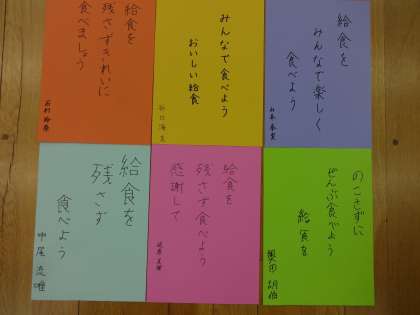 給食を
残さずきれいに
食べましょう
みんなで食べよう
おいしい給食
給食を
みんなで楽しく
食べよう
給食を
残さず
食べよう
給食を
残さず食べよう
感謝して
のこさずに
ぜんぶ食べよう
給食を